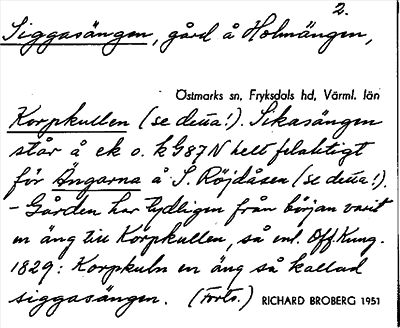 2.
Siggasängen, gård å Holmängen,
Östmarks sn, Fryksdals hd, Värml. län
Korpkullen (se detta!). Sikasängen
står å ek o. kG87N helt felaktigt
för Ängarna å S. Röjdåsen (se detta!).
- Gården har tydligen från början varit
en äng till Korpkullen, så enl. Off. Kung.
1829: Korpkuln en äng så kallad
siggasängen. (Forts.) RICHARD BROBERG 1951